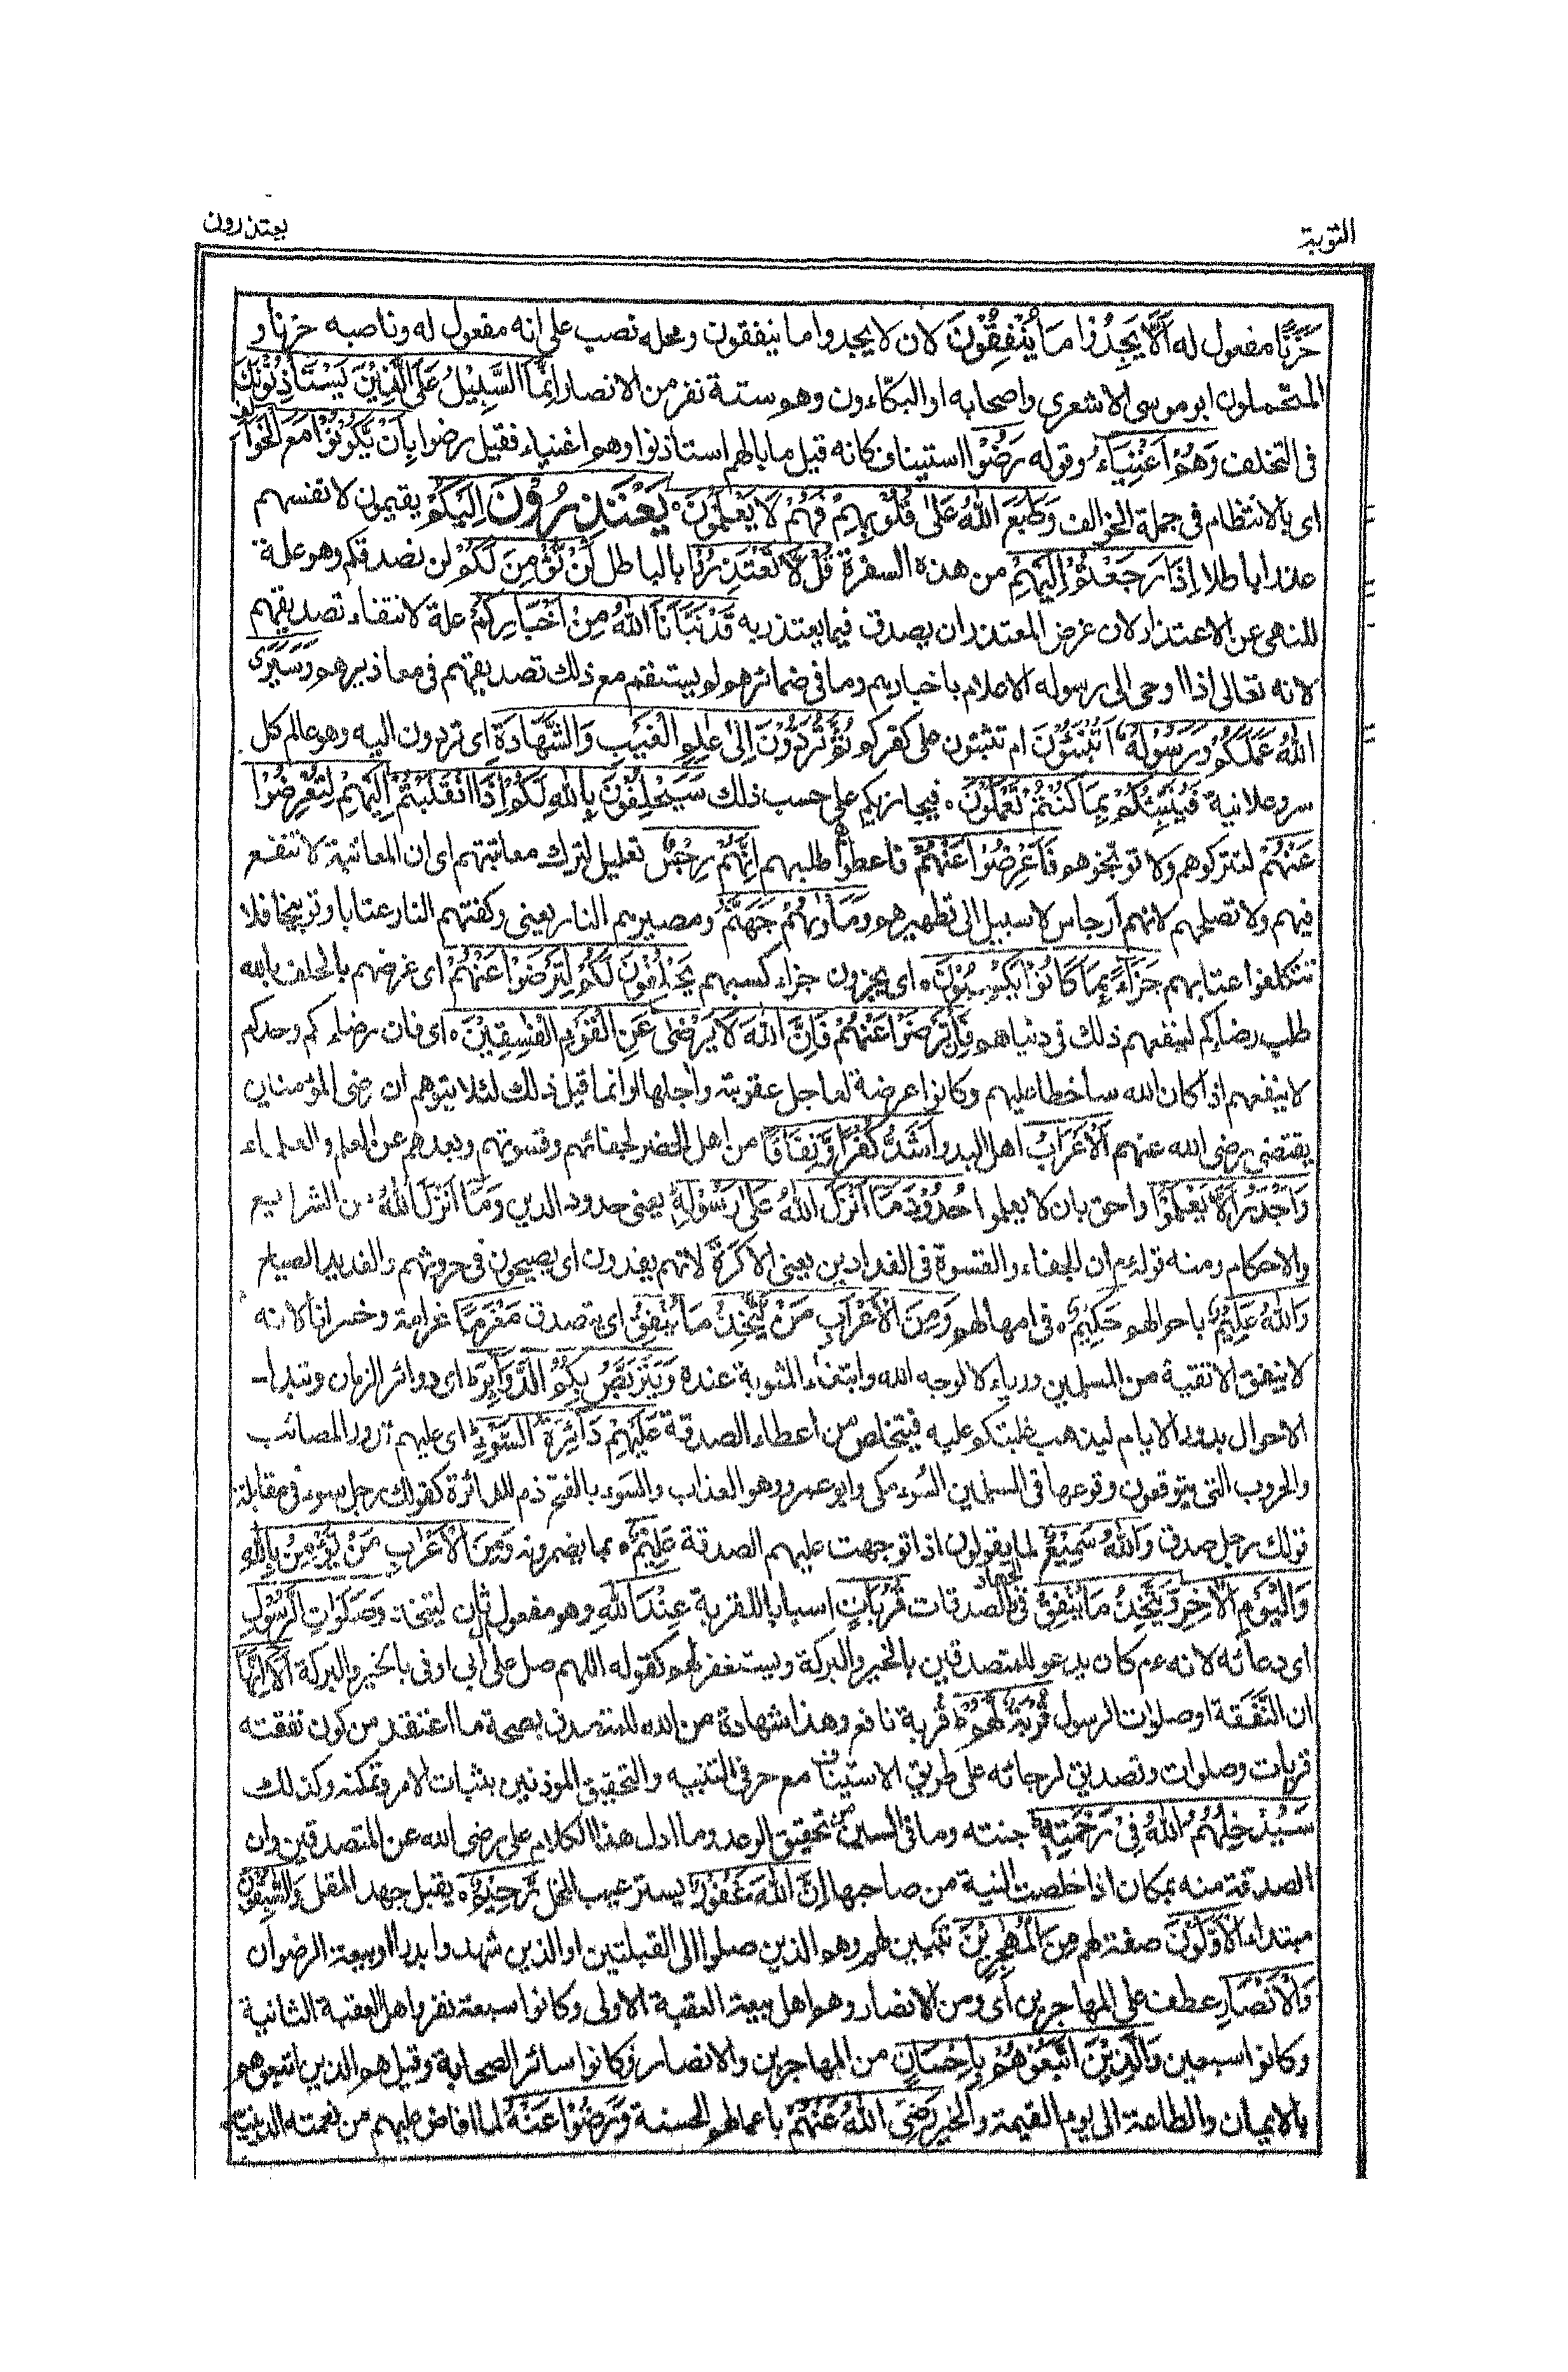 التوبة
يعتذرون
حَزَنًا مفعول له اَلَّا يَجِدُوْا مَا يُنْفِقُوْنَ لان لا يجدوا ما ينفقون ومحله نصب على انه مفعول له وناصبه حزنا و
المتحملون ابو موسى الاشعري واصحابه او البكّاءون وهو ستة نفر من الانصار اِنَّمَا السَّبِيْلُ عَلَى الَّذِيْنَ يَسْتَأْذِنُوْنَكَ
فى التخلف وَهُمْ اَغْنِيَاءُ وقوله رَضُوْا استيناف كانه قيل ما بالهم استاذنوا وهم اغنياء فقيل رضوا بِاَنْ يَّكُوْنُوْا مَعَ الْخَوَالِفِ
اى بالانتظام فى جملة الخوالف وَطَبَعَ اللهُ عَلٰى قُلُوْبِهِمْ فَهُمْ لَا يَعْلَمُوْنَ ۝ يَعْتَذِرُوْنَ اِلَيْكُمْ يقيمون لانفسهم
عذرا باطلا اِذَا رَجَعْتُمْ اِلَيْهِمْ من هذه السفرة قُلْ لَّا تَعْتَذِرُوْا بالباطل لَنْ نُّؤْمِنَ لَكُمْ لن نصدقكم وهو علة
للنهى عن الاعتذار لان غرض المعتذر ان يصدق فيما يعتذر به قَدْ نَبَّاَنَا اللهُ مِنْ اَخْبَارِكُمْ علة لانتفاء تصديقهم
لانه تعالى اذا اوحى الى رسوله الاعلام باخبارهم وما فى ضمائرهم لم يستقم مع ذلك تصديقهم فى معاذيرهم وَسَيَرَى
اللهُ عَمَلَكُمْ وَرَسُوْلُهٗ اتنيبون ام تثبتون على كفركم ثُمَّ تُرَدُّوْنَ اِلٰى عٰلِمِ الْغَيْبِ وَالشَّهَادَةِ اى تردون اليه وهو عالم كل
سر وعلانية فَيُنَبِّئُكُمْ بِمَا كُنْتُمْ تَعْمَلُوْنَ ۝ فيجازيكم على حسب ذلك سَيَحْلِفُوْنَ بِاللهِ لَكُمْ اِذَا انْقَلَبْتُمْ اِلَيْهِمْ لِتُعْرِضُوْا
عَنْهُمْ لتتركوهم ولا توبخوهم فَاَعْرِضُوْا عَنْهُمْ فاعطوا طلبهم اِنَّهُمْ رِجْسٌ تعليل لترك معاتبتهم اى ان المعاتبة لا تنفع
فيهم ولا تصلحهم لانهم ارجاس لا سبيل الى تطهيرهم وَمَأْوٰىهُمْ جَهَنَّمُ ومصيرهم النار يعنى وكفتهم النار عتابا وتوبيخا فلا
تتكلفوا عتابهم جَزَاءً بِمَا كَانُوْا يَكْسِبُوْنَ ۝ اى يجزون جزاء كسبهم يَحْلِفُوْنَ لَكُمْ لِتَرْضَوْا عَنْهُمْ اى غرضهم بالحلف بالله
طلب رضاكم لينفعهم ذلك فى دنياهم فَاِنْ تَرْضَوْا عَنْهُمْ فَاِنَّ اللهَ لَا يَرْضٰى عَنِ الْقَوْمِ الْفٰسِقِيْنَ ۝ اى فان رضاءكم وحدكم
لا ينفعهم اذا كان الله ساخطا عليهم وكانوا عرضة لعاجل عقوبته واجلها وانما قيل ذلك لئلا يتوهم ان رضى المؤمنين
يقتضى رضى الله عنهم اَلْاَعْرَابُ اهل البدو اَشَدُّ كُفْرًا وَّنِفَاقًا من اهل الحضر لجفائهم وقسوتهم وبعدهم عن العلم والعلماء
وَاَجْدَرُ اَلَّا يَعْلَمُوْا واحق بان لا يعلموا حُدُوْدَ مَا اَنْزَلَ اللهُ عَلٰى رَسُوْلِهٖ يعنى حدود الدين وَمَا اَنْزَلَ اللهُ من الشرائع
والاحكام ومنه قوله عم ان الجفاء والقسوة فى الفدادين يعنى الاكرة لانهم يفدون اى يصيحون فى حروثهم والفديد الصياح
وَاللهُ عَلِيْمٌ باحوالهم حَكِيْمٌ ۝ فى امهالهم وَمِنَ الْاَعْرَابِ مَنْ يَّتَّخِذُ مَا يُنْفِقُ اى يتصدق مَغْرَمًا غرامة وخسرانا لانه
لا ينفق الا تقية من المسلمين ورياء لا لوجه الله وابتغاء المثوبة عنده وَيَتَرَبَّصُ بِكُمُ الدَّوَائِرَ اى دوائر الزمان وتبدل
الاحوال بدور الايام ليذهب غلبتكم عليه فيتخلص من اعطاء الصدقة عَلَيْهِمْ دَائِرَةُ السَّوْءِ اى عليهم تدور المصائب
والحروب التى يتوقعون وقوعها فى المسلمين السُوء مكى وابو عمرو وهو العذاب والسَوء بالفتح ذم للدائرة كقولك رجل سوء فى مقابلة
قولك رجل صدق وَاللهُ سَمِيْعٌ لما يقولون اذا توجهت عليهم الصدقة عَلِيْمٌ ۝ بما يضمرونه وَمِنَ الْاَعْرَابِ مَنْ يُّؤْمِنُ بِاللهِ
وَالْيَوْمِ الْاٰخِرِ وَيَتَّخِذُ مَا يُنْفِقُ فى الجهاد والصدقات قُرُبَاتٍ اسبابا للقربة عِنْدَ اللهِ وهو مفعول ثان ليتخذ وَصَلَوٰتِ الرَّسُوْلِ
اى دعائه لانه عم كان يدعو للمتصدقين بالخير والبركة ويستغفر لهم كقوله اللهم صل على ابى اوفى بالخير والبركة اَلَا اِنَّهَا
ان النَّفَقَة او صلوات الرسول قُرْبَةٌ لَّهُمْ قربة نافع وهذا شهادة من الله للمتصدق بصحة ما اعتقد من كون نفقته
قربات وصلوات وتصديق لرجائه على طريق الاستيناف مع حرفى التنبيه والتحقيق الموذنين بثبات الامر وتمكنه وكذلك
سَيُدْخِلُهُمُ اللهُ فِىْ رَحْمَتِهٖ جنته وما فى السين من تحقيق الوعد وما ادل هذا الكلام على رضى الله عن المتصدقين وان
الصدقة منه بمكان اذا خلصت النية من صاحبها اِنَّ اللهَ غَفُوْرٌ يستر عيب المخل رَّحِيْمٌ ۝ يقبل جهد المقل وَالسّٰبِقُوْنَ
مبتداء الْاَوَّلُوْنَ صفة لهم مِنَ الْمُهٰجِرِيْنَ تبيين لهم وهم الذين صلوا الى القبلتين او الذين شهدوا بدرا او بيعة الرضوان
وَالْاَنْصَارِ عطف على المهاجرين اى ومن الانصار وهم اهل بيعة العقبة الاولى وكانوا سبعة نفر واهل العقبة الثانية
وكانوا سبعين وَالَّذِيْنَ اتَّبَعُوْهُمْ بِاِحْسَانٍ من المهاجرين والانصار وكانوا سائر الصحابة وقيل هم الذين اتبعوهم
بالايمان والطاعة الى يوم القيمة والخير رَضِىَ اللهُ عَنْهُمْ باعمالهم الحسنة وَرَضُوْا عَنْهُ لما افاض عليهم من نعمته الدينية